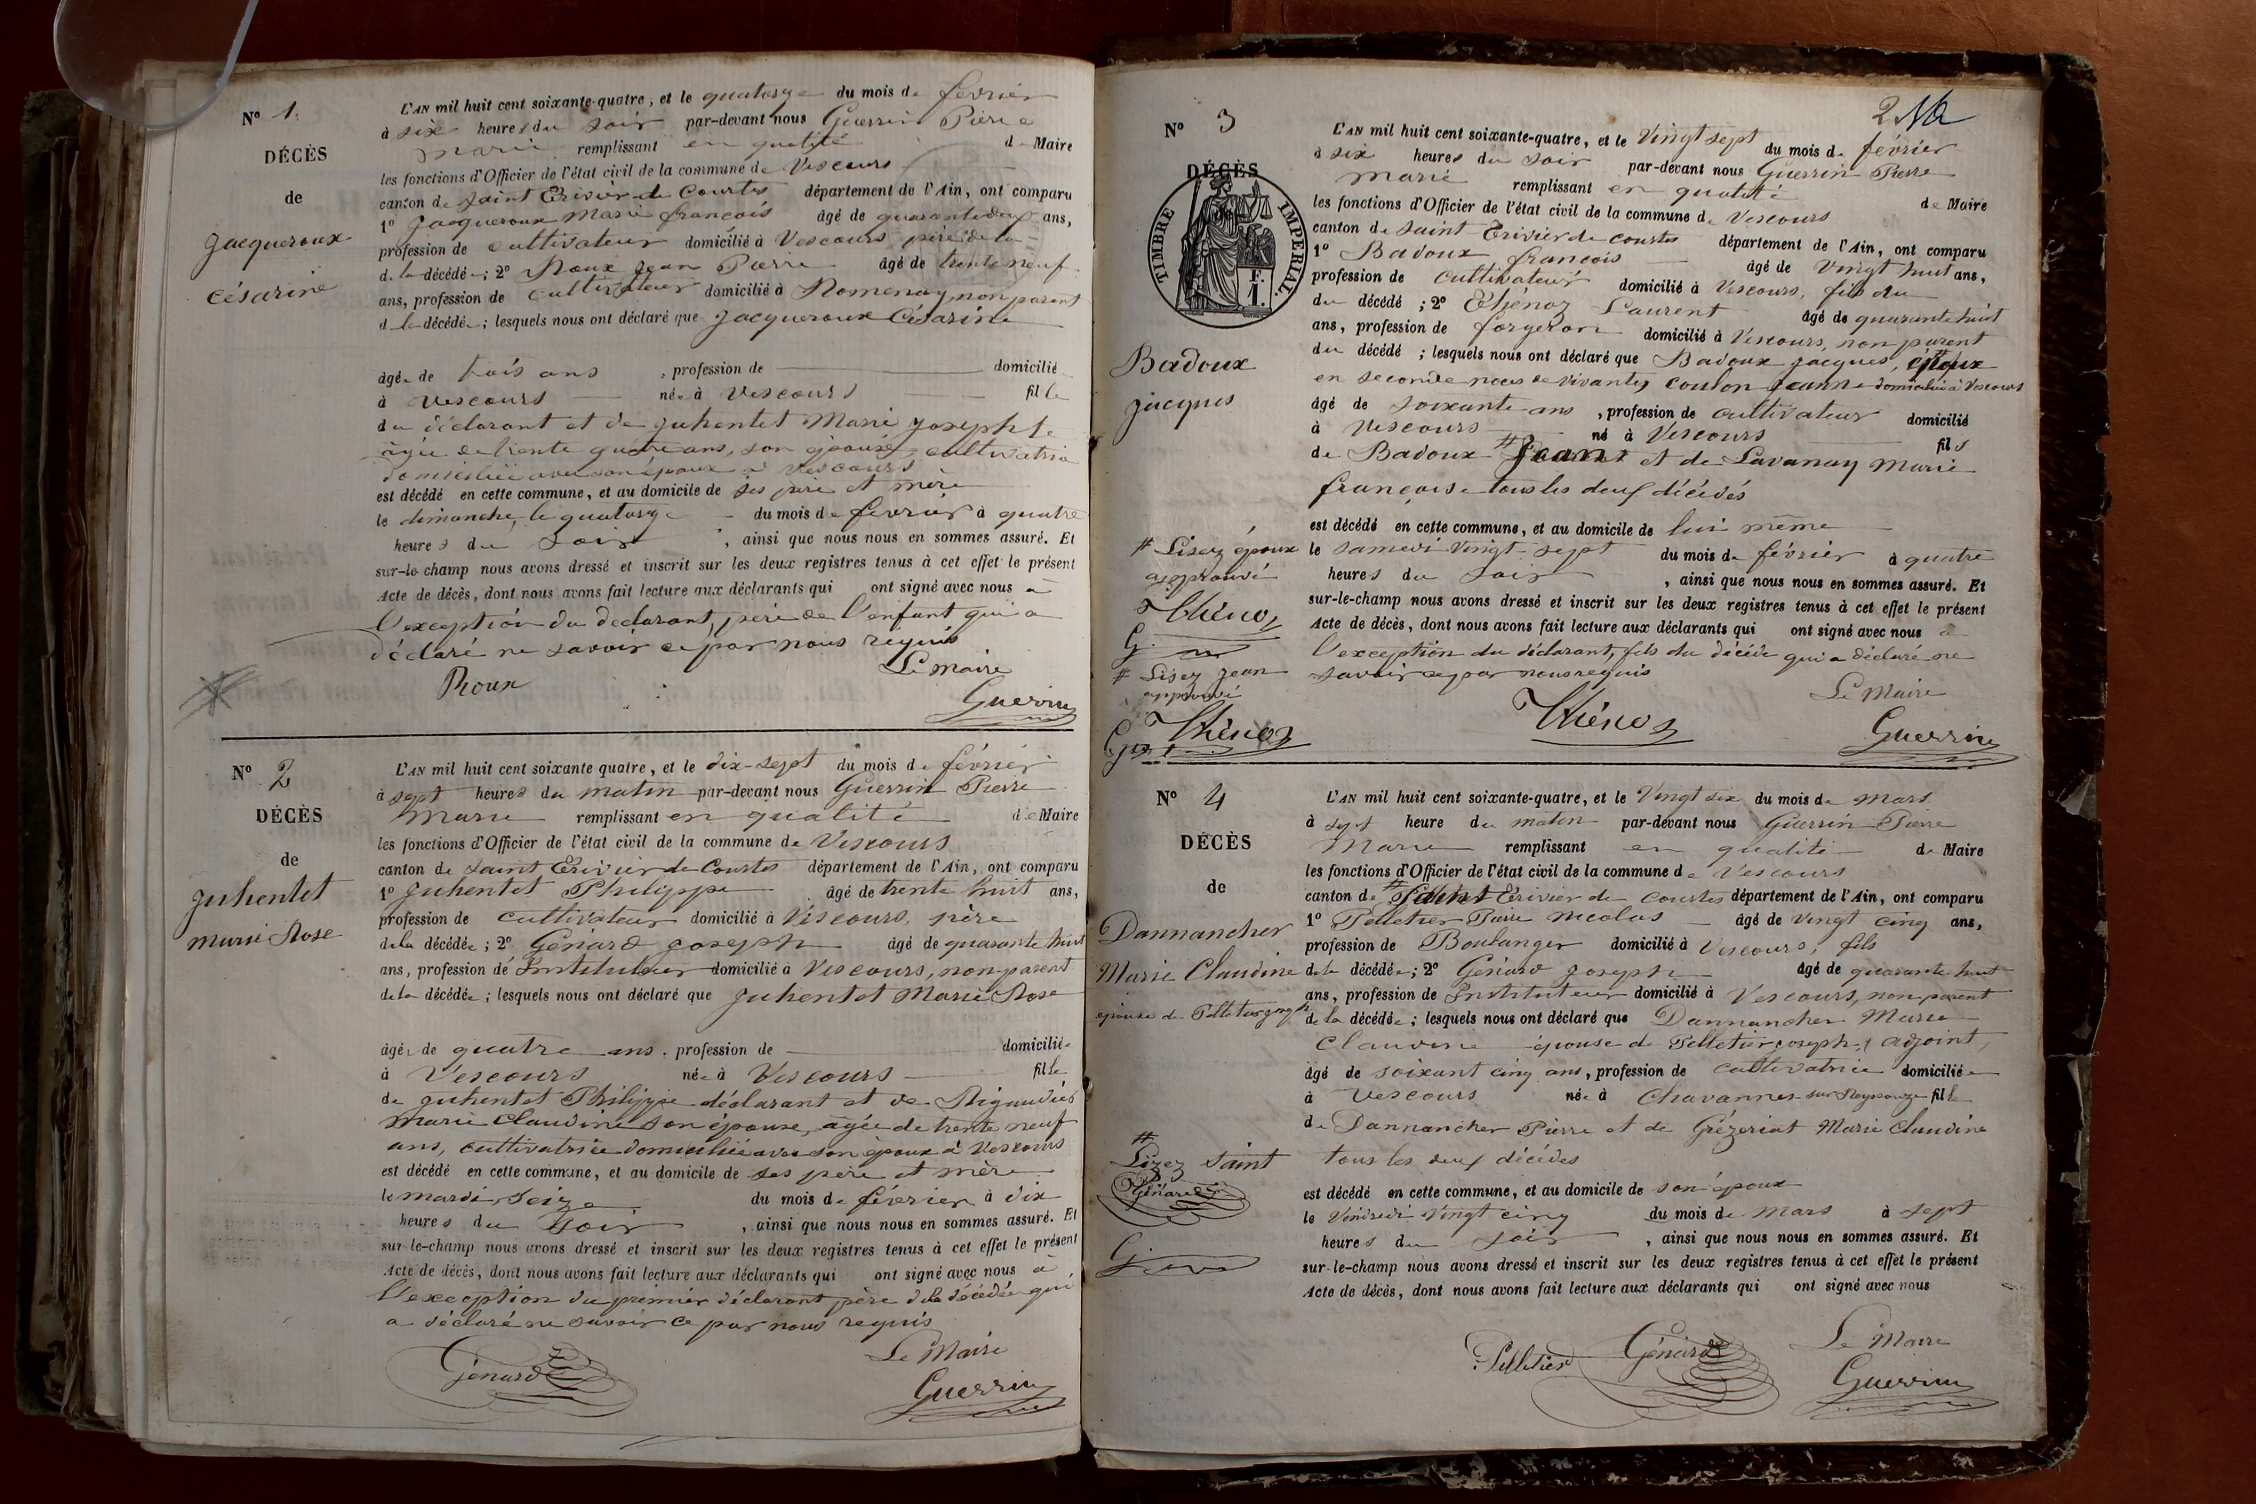 N° 1.
DÉCÈS
de
Jacqueroux
Césarine
L'AN mil huit cent soixante-quatre, et le quatorze du mois de février
à six heures du soir par-devant nous Guerrin Pierre
Marie remplissant en qualité de Maire
les fonctions d'Officier de l'état civil de la commune de Vescours
canton de Saint Trivier de Courtes département de l'Ain, ont comparu
1° Jacqueroux Marie françois âgé de quarante deux ans,
profession de cultivateur domicilié à Vescours père de la
de la décédée; 2° Roux Jean Pierre âgé de trente neuf
ans, profession de cultivateur domicilié à Romenay, non parent
de la décédée; lesquels nous ont déclaré que Jacqueroux Césarine
âgée de trois ans, profession de domicilié
à Vescours née à Vescours fille
du déclarant et de Juhentet Marie Josephte
âgée de trente quatre ans, son épouse, cultivatrice
domiciliée avec son époux à Vescours
est décédé en cette commune, et au domicile de ses père et mère
le dimanche, le quatorze du mois de février à quatre
heures du soir, ainsi que nous nous en sommes assuré. Et
sur-le-champ nous avons dressé et inscrit sur les deux registres tenus à cet effet le présent
Acte de décès, dont nous avons fait lecture aux déclarants qui ont signé avec nous à
l'exception du déclarant, père de l'enfant qui a
déclaré ne savoir ce par nous requis
Le Maire
Roux
Guerrin
N° 2
DÉCÈS
de
Juhentet
Marie Rose
L'AN mil huit cent soixante quatre, et le dix-sept du mois de février
à sept heures du matin par-devant nous Guerrin Pierre
Marie remplissant en qualité de Maire
les fonctions d'Officier de l'état civil de la commune de Vescours
canton de Saint Trivier de Courtes département de l'Ain, ont comparu
1° Juhentet Philippe âgé de trente huit ans,
profession de cultivateur domicilié à Vescours, père
de la décédée; 2° Génard Joseph âgé de quarante huit
ans, profession de Instituteur domicilié à Vescours, non parent
de la décédée; lesquels nous ont déclaré que Juhentet Marie Rose
âgée de quatre ans, profession de domiciliée
à Vescours née à Vescours fille
de Juhentet Philippe déclarant et de Rigaudier
Marie Claudine son épouse, agée de trente neuf
ans, cultivatrice domiciliée avec son époux à Vescours
est décédé en cette commune, et au domicile de ses père et mère
le mardi, seize du mois de février à dix
heures du soir, ainsi que nous nous en sommes assuré. Et
sur-le-champ nous avons dressé et inscrit sur les deux registres tenus à cet effet le présent
Acte de décès, dont nous avons fait lecture aux déclarants qui ont signé avec nous à
l'exception du premier déclarant père de la décédée qui
a déclaré ne savoir ce par nous requis
Le Maire
Génard
Guerrin
2
N° 3
DÉCÈS
TIMBRE IMPERIAL.
F.
1.
Badoux
Jacques
L'AN mil huit cent soixante-quatre, et le Vingt sept du mois de février
à six heures du soir par-devant nous Guerrin Pierre
Marie remplissant en qualité de Maire
les fonctions d'Officier de l'état civil de la commune de Vescours
canton de Saint Trivier de Courtes département de l'Ain, ont comparu
1° Badoux françois âgé de Vingt huit ans,
profession de cultivateur domicilié à Vescours, fils du
du décédé; 2° Thénoz Laurent âgé de quarante huit
ans, profession de forgeron domicilié à Vescours, non parent
du décédé; lesquels nous ont déclaré que Badoux Jacques, # époux
en seconde noces de vivante, Coulon Jeanne domiciliée à Vescours
âgé de soixante ans, profession de cultivateur domicilié
à Vescours né à Vescours fils
de Badoux # Jean et de Lavanay Marie
françoise tous les deux décédés
est décédé en cette commune, et au domicile de lui même
le samedi vingt-sept du mois de février à quatre
heures du soir, ainsi que nous nous en sommes assuré. Et
sur-le-champ nous avons dressé et inscrit sur les deux registres tenus à cet effet le présent
Acte de décès, dont nous avons fait lecture aux déclarants qui ont signé avec nous à
l'exception du déclarant, fils du décédé qui a déclaré ne
savoir ce par nous requis
# Lisez époux
approuvé
Thénoz
G.
# Lisez Jean
approuvé
Thénoz
Le Maire
Thénoz
Guerrin
N° 4
DÉCÈS
de
Dannancher
Marie Claudine
épouse de Pelletier Joseph
L'AN mil huit cent soixante-quatre, et le Vingt six du mois de Mars
à sept heure du matin par-devant nous Guerrin Pierre
Marie remplissant en qualité de Maire
les fonctions d'Officier de l'état civil de la commune de Vescours
canton de # Saint Trivier de Courtes département de l'Ain, ont comparu
1° Pelletier Pierre Nicolas âgé de Vingt cinq ans,
profession de Boulanger domicilié à Vescours, fils
de la décédée; 2° Génard Joseph âgé de quarante huit
ans, profession de Instituteur domicilié à Vescours, non parent
de la décédée; lesquels nous ont déclaré que Dannancher Marie
Claudine épouse de Pelletier Joseph, adjoint,
âgé de soixant cinq ans, profession de cultivatrice domiciliée
à Vescours née à Chavannes-sur-Reyssouze fille
de Dannancher Pierre et de Grézeriat Marie Claudine
tous les deux décédés
est décédé en cette commune, et au domicile de son époux
le Vendredi Vingt cinq du mois de Mars à sept
heures du soir, ainsi que nous nous en sommes assuré. Et
sur-le-champ nous avons dressé et inscrit sur les deux registres tenus à cet effet le présent
Acte de décès, dont nous avons fait lecture aux déclarants qui ont signé avec nous
#
Lizez Saint
Génard
G.
Le Maire
Pelletier
Génard
Guerrin